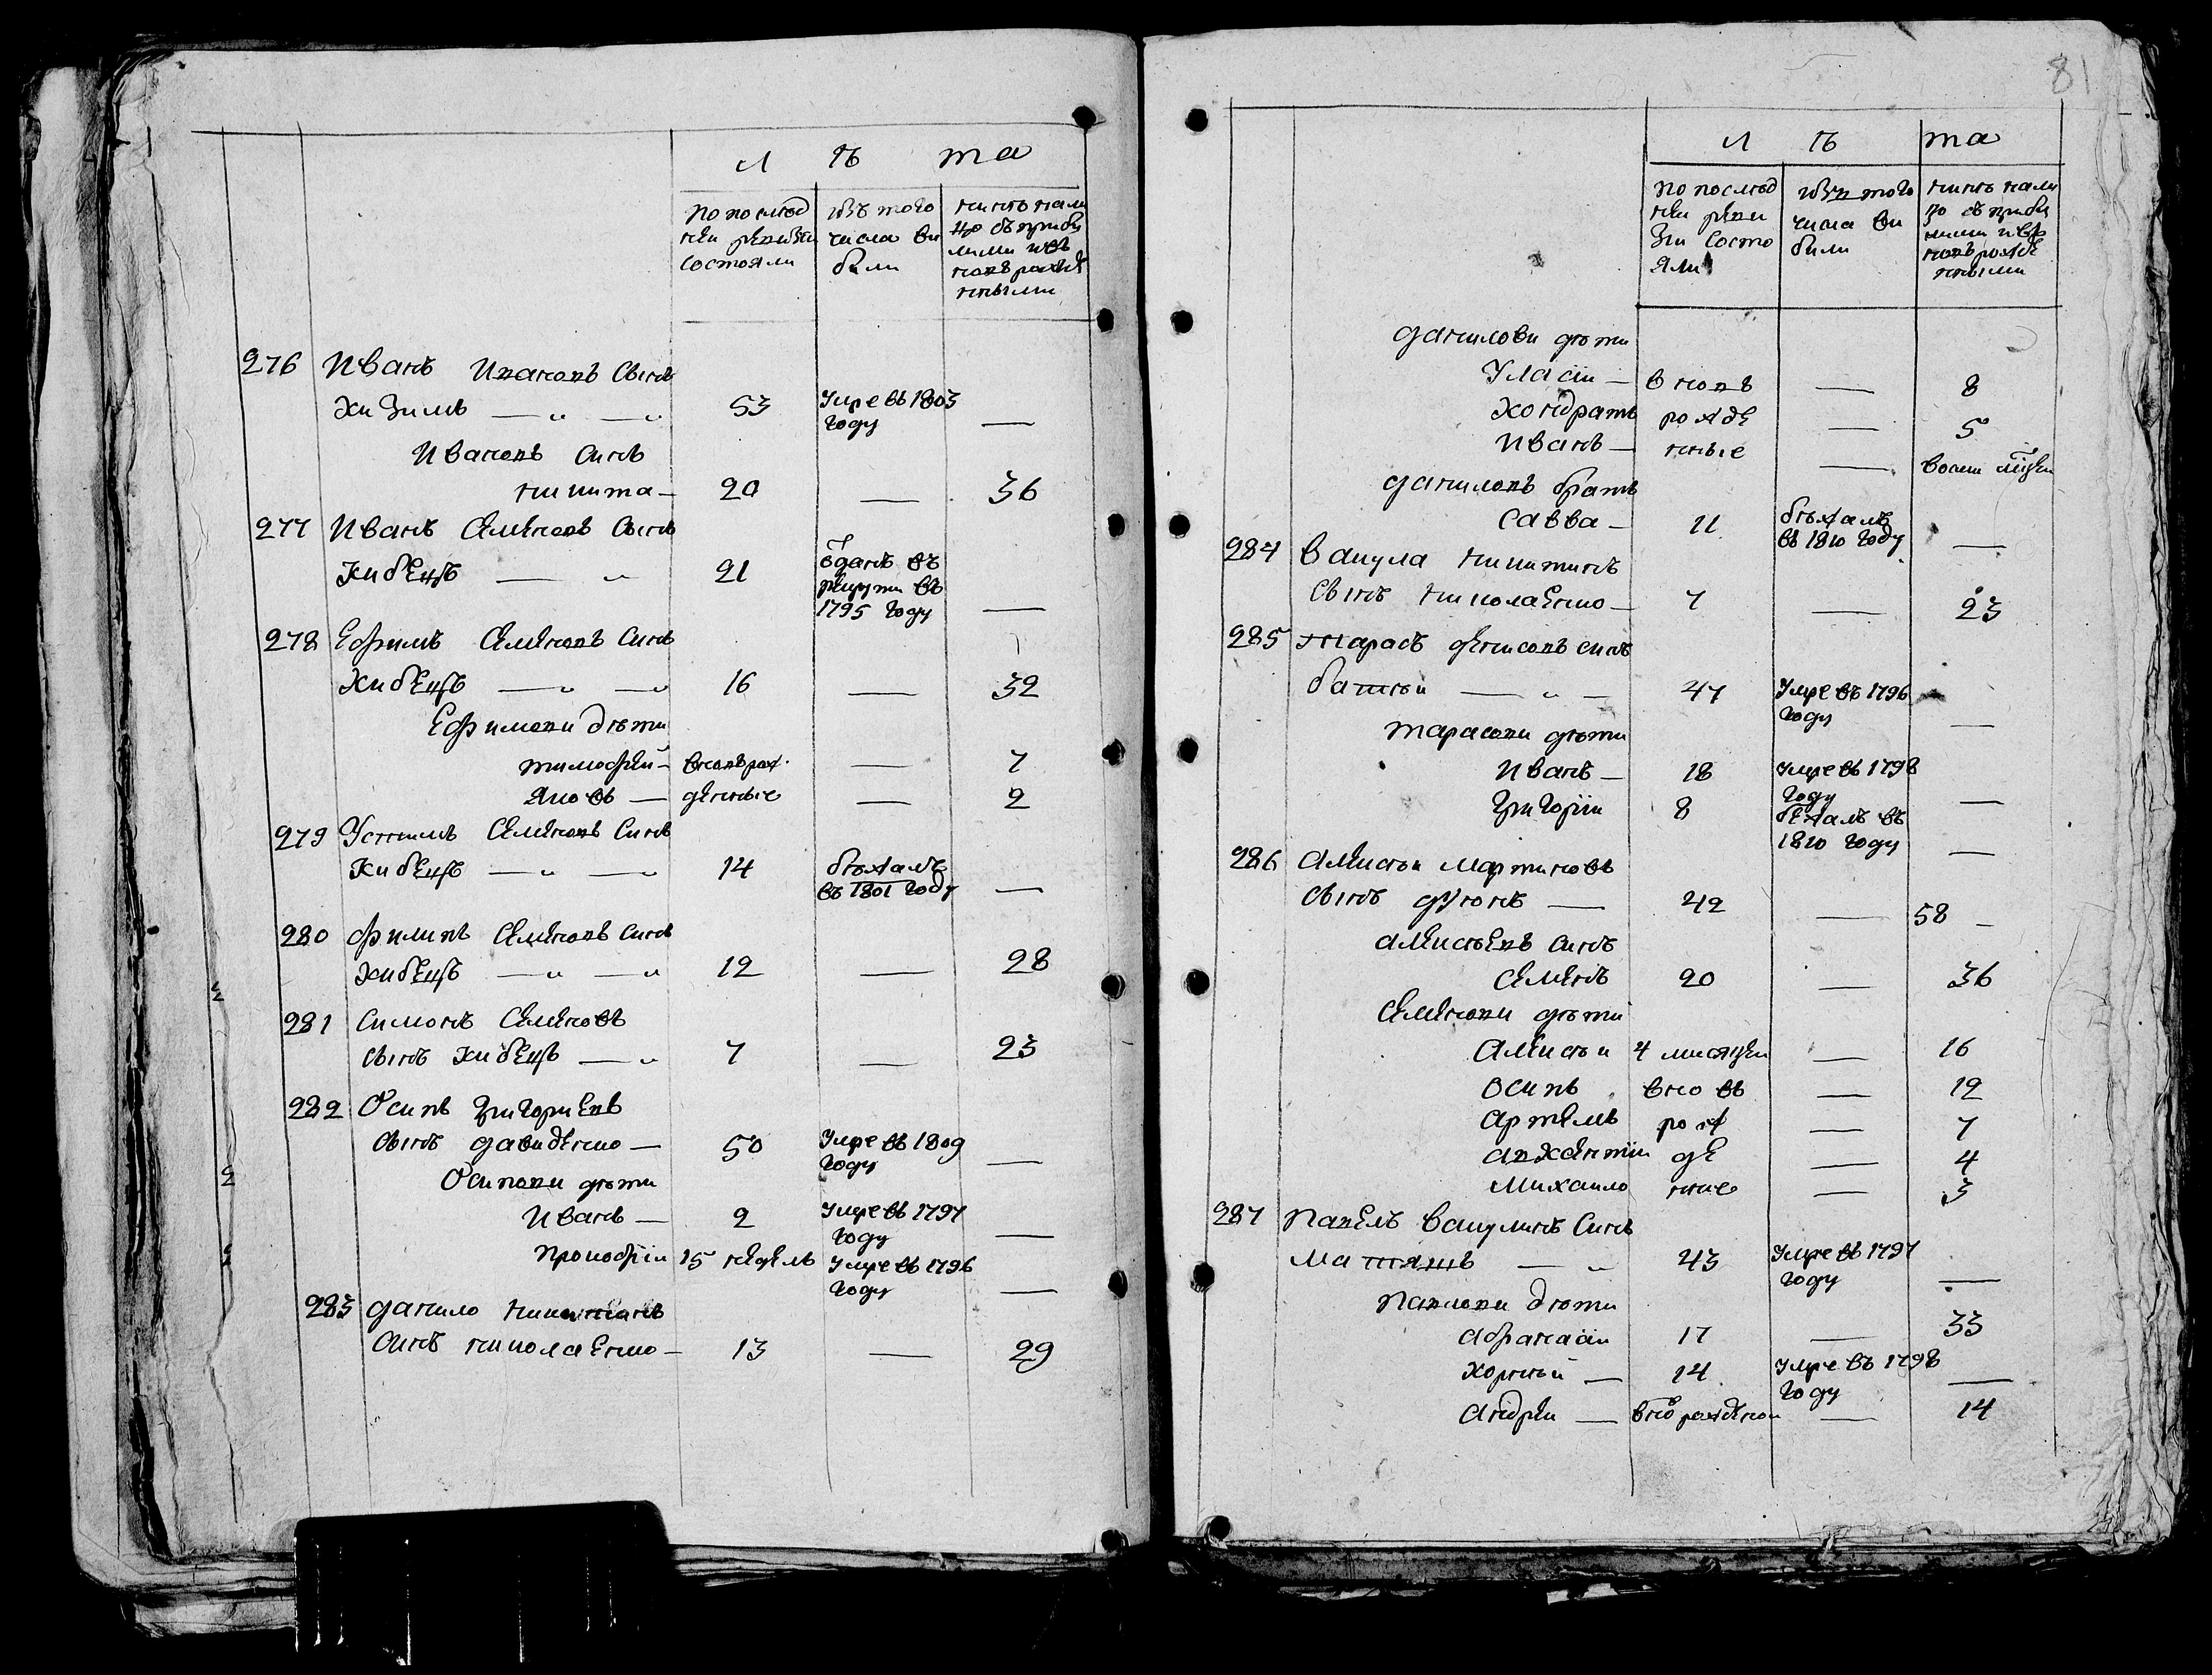 Л ѣ та
по послѣд
ней ревизіи
состояли
изъ того
числа вы
были
нынѣ нали
цо съ прибы
лыми и въ
новѣ рожде
нными
276 Иванъ Ивановъ сынъ
Кизимъ 53 умре въ 1803
году —
Ивановъ синъ
Никита — 20 — 36
277 Иванъ Семеновъ сынъ
Кибецъ — 21 ѿданъ въ
рекрути въ
1795 году —
278 Ефимъ Семеновъ синъ
Кибецъ — 16 — 32
Ефимови дѣти
Тимофей — вновѣ рож 7
Яковъ — денные — 2
279 Устимъ Семеновъ синъ
Кибецъ — 14 бѣжалъ
въ 1801 году —
280 Филипъ Семеновъ синъ
Кибецъ — 12 — 28
281 Симонъ Семеновъ
сынъ Кибецъ — 7 — 23
282 Осипъ Григориевъ
сынъ Давиденко — 50 умре въ 1809
году —
Осипови дѣти
Иванъ — 2 умре въ 1797
году —
Прокофій 15 недель умре въ 1796
году —
283 Данило Никитинъ
синъ Николаенко — 13 — 29
81
Л ѣ та
по послѣд
ней реви
зіи состо
яли
изъ того
числа вы
были
нынѣ нали
цо съ прибы
лими и въ
новѣ рожде
нными
Данилови дѣти
Уласій — вновѣ — 8
Кондратъ рожде — 5
Иванъ — нные — восем мѣцей
Даниловъ братъ
Савва — 11 бѣжалъ
въ 1810 году —
284 Вакула Никитинъ
сынъ Николаенко — 7 — 23
285 Тарасъ Денисовъ синъ
Батѣй — 47 умре въ 1796
году —
Тарасови дѣти
Иванъ — 18 умре въ 1798
году —
Григорій 8 бежалъ въ
1810 году —
286 Алексѣй Мартиновъ
сынъ — 42 — 58 —
Алексѣевъ синъ
Семенъ 20 — 36
Семенови дѣти
Алексѣй 4 мисяцей — 16
Осипъ вновъ — 12
Артемъ рож — 7
Авксентій де — 4
Михайло нние — 3
287 Павелъ Вакулинъ синъ
Матяшъ — 43 умре въ 1797
году —
Павлови дѣти
Афанасій 17 — 33
Корнѣй — 14 умре въ 1798
году —
Андрей — внов рожденои — 14